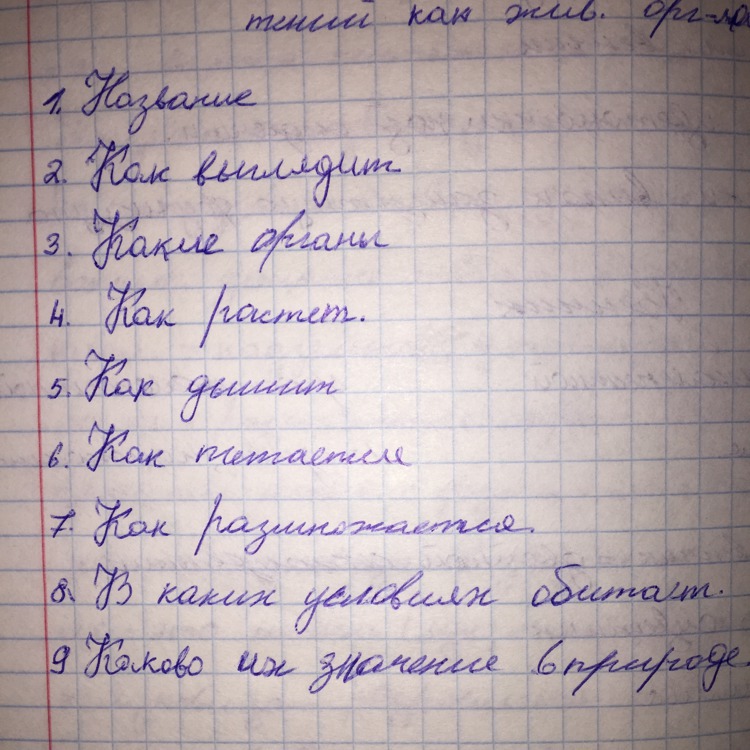 тений как жив. орг-мо
1. Название
2. Как выглядит
3. Какие органы
4. Как растет.
5. Как дышит
6. Как питается
7. Как размножается.
8. В каких условиях обитает.
9 Каково их значение в природе.